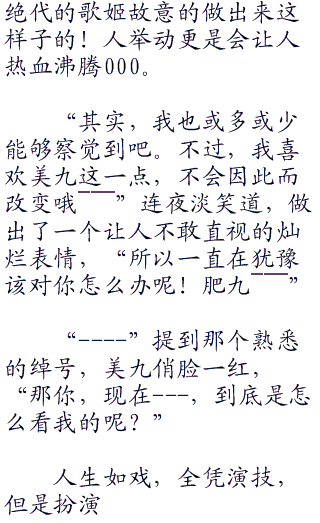 绝代的歌姬故意的做出来这
样子的！人举动更是会让人
热血沸腾000。
“其实，我也或多或少
能够察觉到吧。不过，我喜
欢美九这一点，不会因此而
改变哦￣￣”连夜淡笑道，做
出了一个让人不敢直视的灿
烂表情，“所以一直在犹豫
该对你怎么办呢！肥九￣￣”
“----”提到那个熟悉
的绰号，美九俏脸一红，
“那你，现在---，到底是怎
么看我的呢？”
人生如戏，全凭演技，
但是扮演